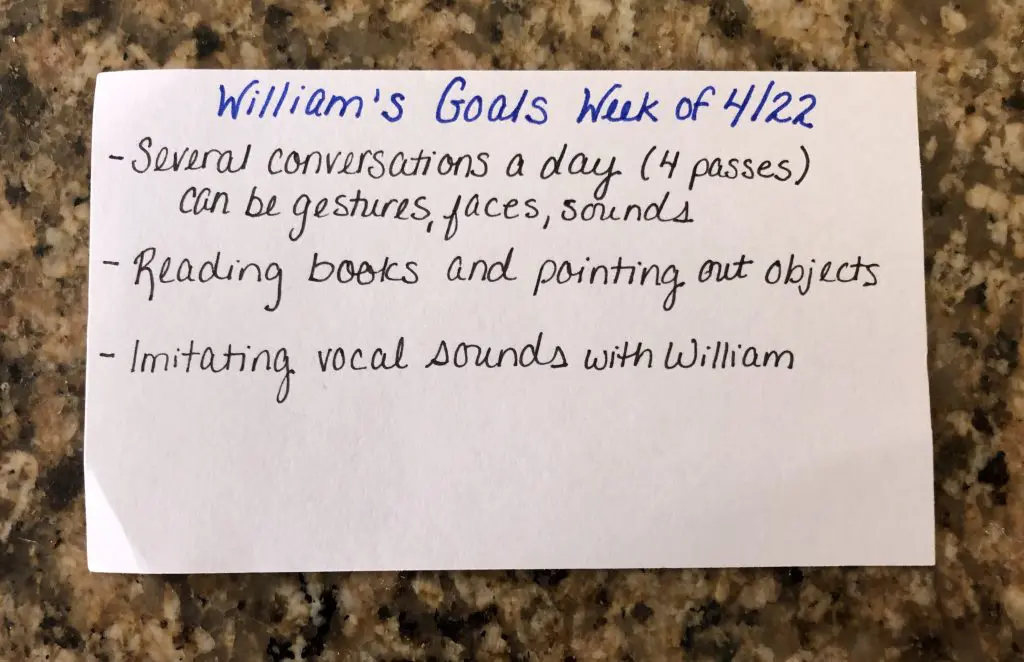 William's Goals Week of 4/22
- Several conversations a day (4 passes)
can be gestures, faces, sounds
- Reading books and pointing out objects
- Imitating vocal sounds with William